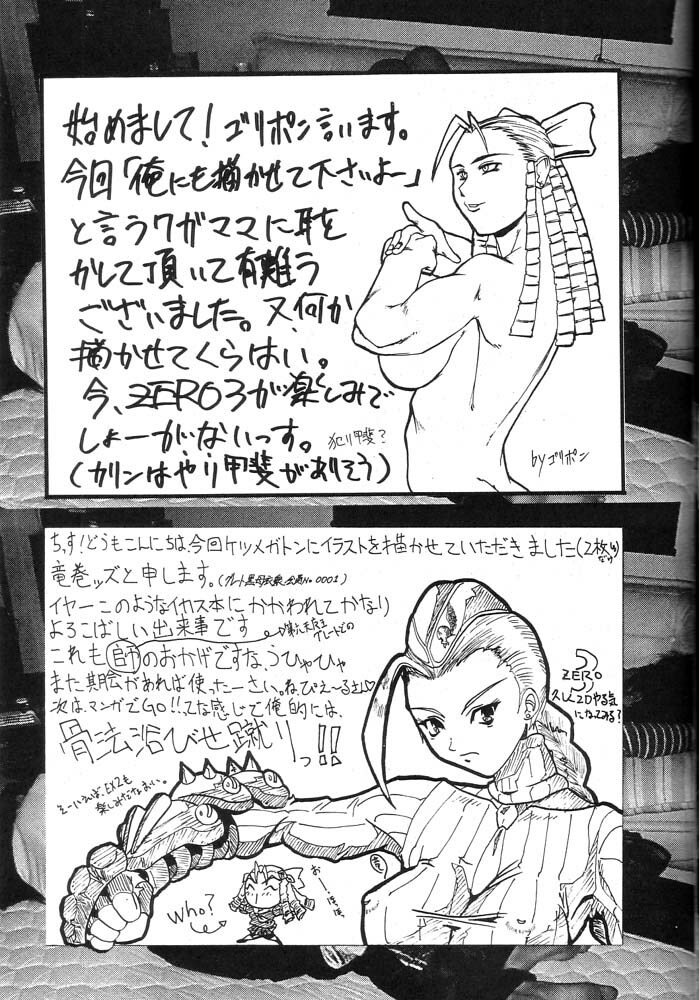 始めまして！ゴリポン言います。
今回「俺にも描かせて下さいよー」
と言うワガママに耳を
かして頂いて有難う
ございました。又、何か
描かせてくらはい。
今、ZERO3が楽しみで
しょーがないっす。
犯り甲斐？
(カリンはやり甲斐がありそう)
byゴリポン
ちっす！どうもこんにちは、今回ケツメガトンにイラストを描かせていただきました(2枚
竜巻ッズと申します。
イヤーこのようなイカス本にかかわれてかなり
よろこばしい出来事です
これも師のおかげですなうひゃひゃ
また機会があれば使ったーさい。ねぴえ〜るさん♡
次は、マンガでGO!!てな感じで俺的には、
骨法浴びせ蹴りっ!!
ZERO3
久しく2Dやる気
になってみる？
そーいえば、EX2も
楽しみだなおい。
Who?
おーほほほ